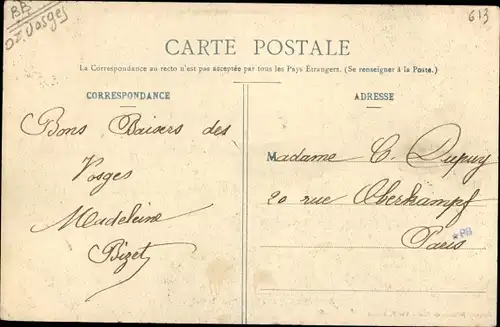 BB
Dt. Vosges
613
CARTE POSTALE
La Correspondance au recto n'est pas acceptée par tous les Pays Étrangers. (Se renseigner à la Poste.)
CORRESPONDANCE
Bons Baisers des
Vosges
Madeleine
Bizet
ADRESSE
Madame C. Dupuy
20 rue Oberkampf
Paris
*PB